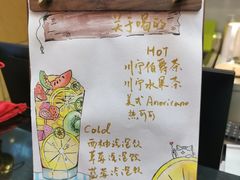 关于喝的
HOT
川宁伯爵茶
川宁水果茶
美式 Americano
热可可
Cold
西柚冰混饮
草莓冰混饮
蓝莓冰混饮